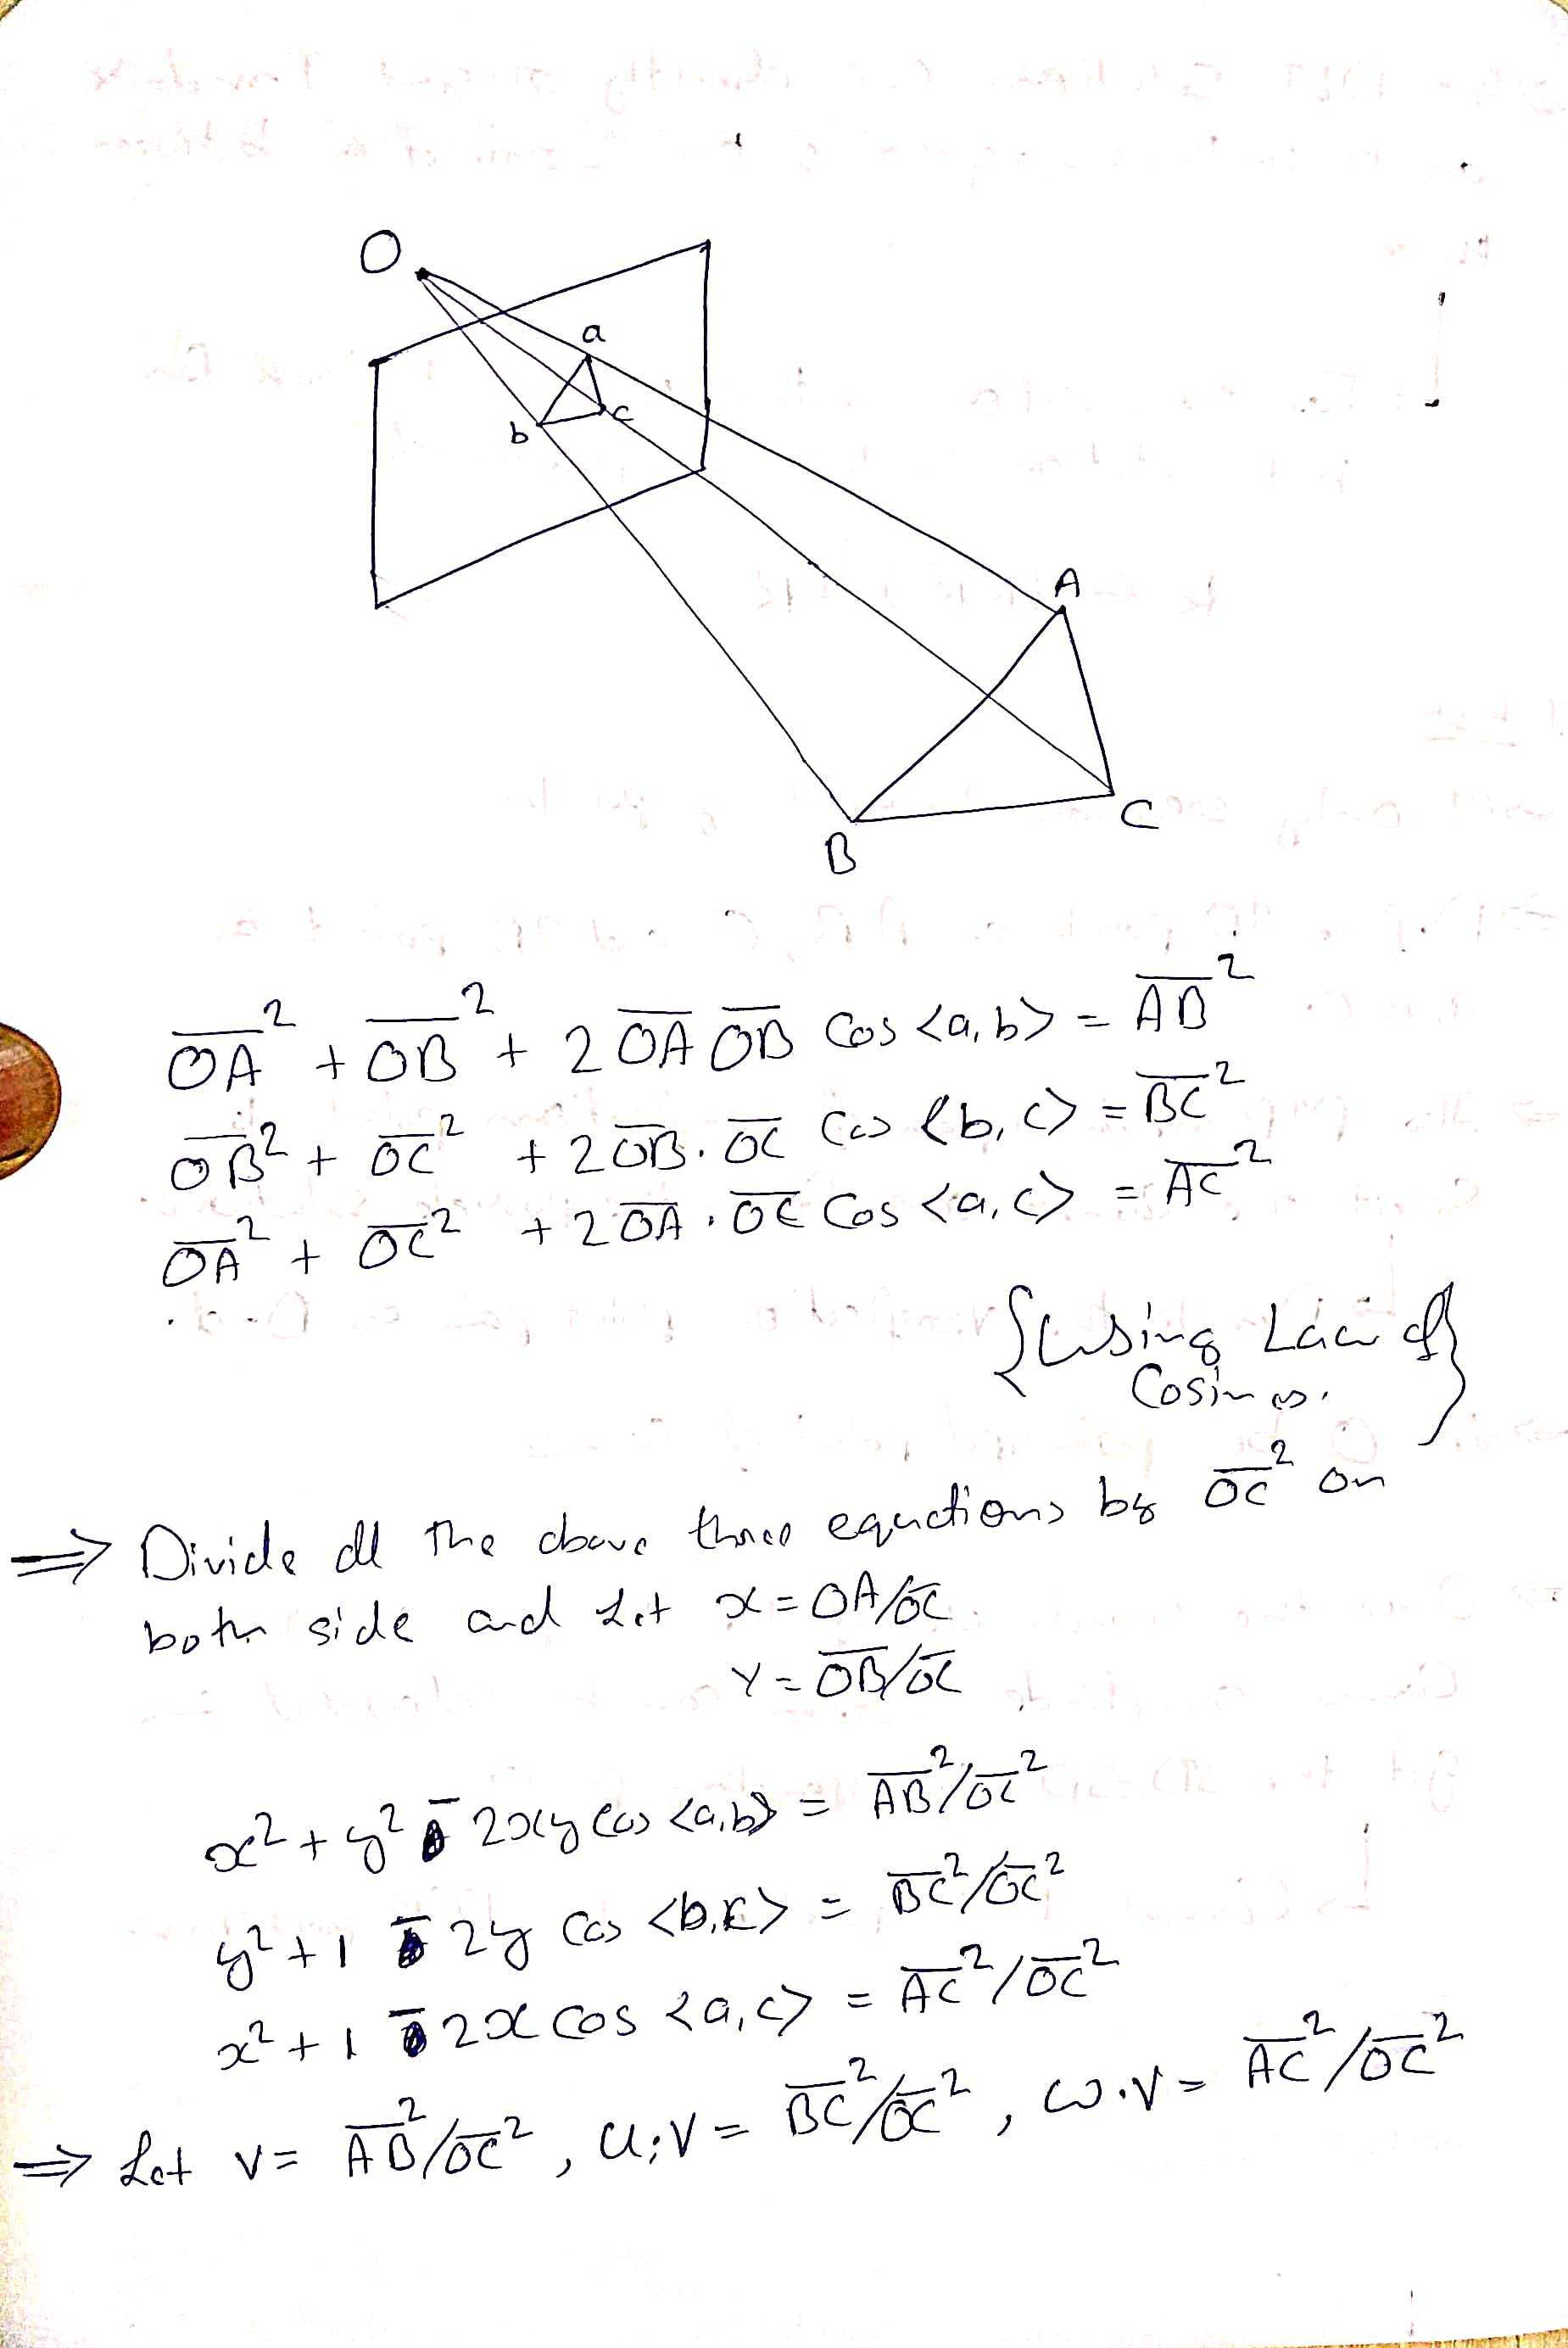 O
a
b
c
A
B
C
OA² + OB² + 2 OA OB Cos <a, b> = AB²
OB² + OC² + 2 OB . OC Cos <b, c> = BC²
OA² + OC² + 2 OA . OC Cos <a, c> = AC²
{Using Law of
Cosines.}
⇒ Divide all the above three equations by OC² on
both side and Let x = OA/OC
Y = OB/OC
x² + y² - 2xy cos <a,b> = AB²/OC²
y² + 1 - 2y Cos <b,c> = BC²/OC²
x² + 1 - 2x Cos <a,c> = AC²/OC²
⇒ Let v = AB²/OC² , u.v = BC²/OC² , w.v = AC²/OC²